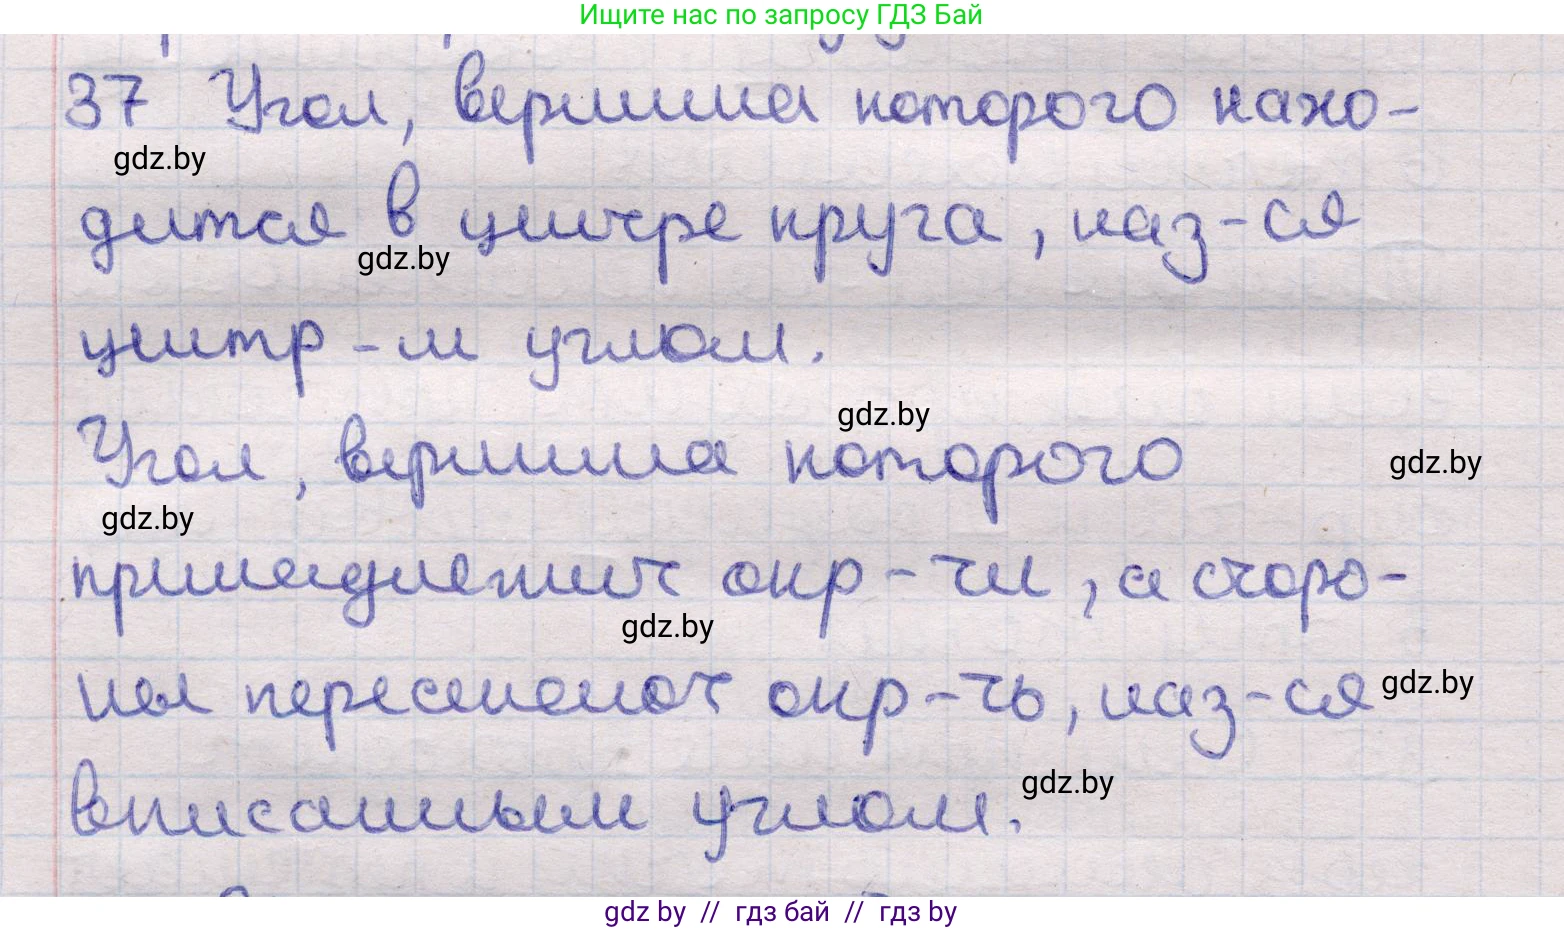 Ищите нас по запросу ГДЗ Бай
37 Угол, вершина которого нахо-
gdz.by
дится в центре круга, наз-ся
gdz.by
центр-м углом.
gdz.by
Угол, вершина которого
gdz.by
gdz.by
принадлежит окр-ти, а сторо-
gdz.by
ны пересекают окр-ть, наз-ся
gdz.by
gdz.by
вписанным углом.
gdz by // гдз бай // гдз by